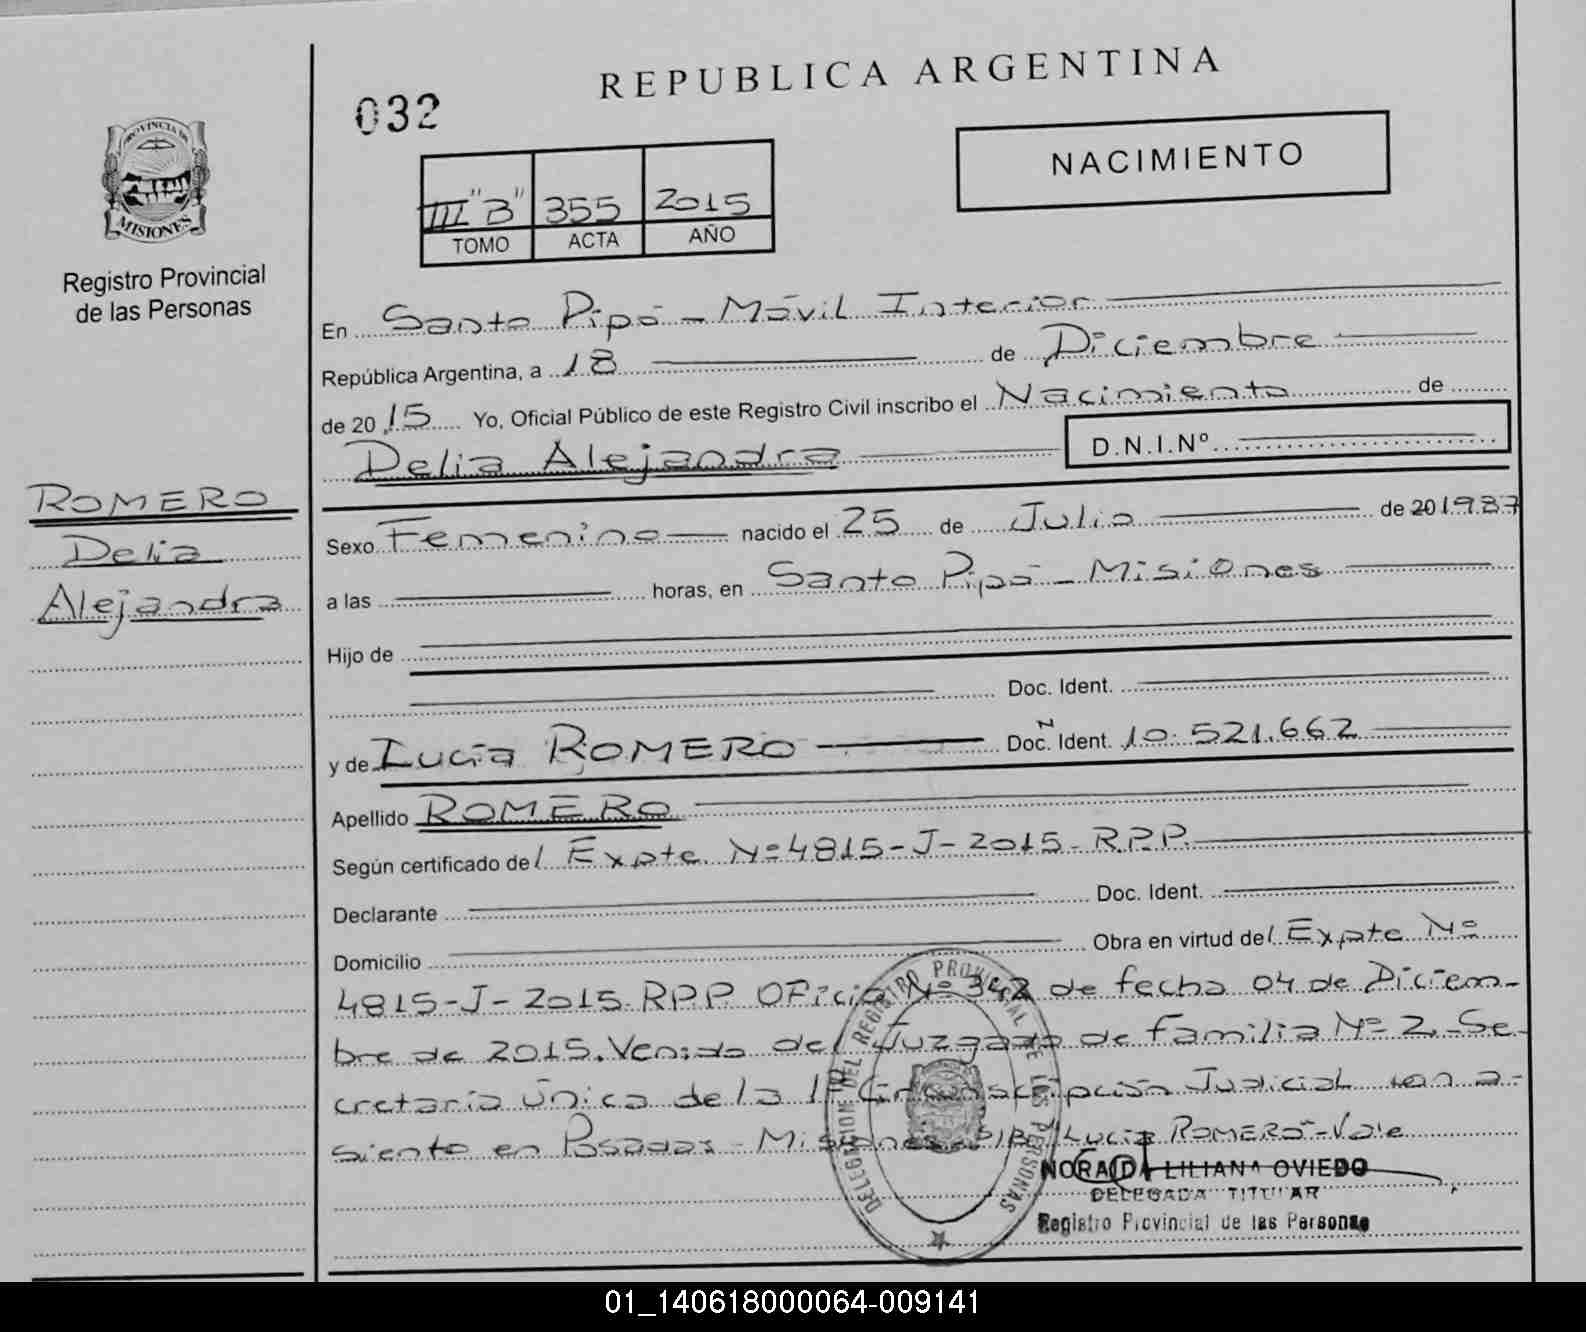 REPUBLICA ARGENTINA
032
NACIMIENTO
III "B" 355 2015
TOMO ACTA AÑO
PROVINCIA DE
MISIONES
Registro Provincial
de las Personas
En Santo Pipó - Móvil Interior
República Argentina, a 18 de Diciembre
de 2015 Yo, Oficial Público de este Registro Civil inscribo el Nacimiento de
Delia Alejandra D.N.I.Nº
ROMERO
Delia
Alejandra
Sexo Femenino nacido el 25 de Julio de 201987
a las horas, en Santo Pipó - Misiones
Hijo de
Doc. Ident.
y de Lucía ROMERO Doc. Ident. N 10.521.662
Apellido ROMERO
Según certificado del Expte. Nº 4815-J-2015-R.P.P.
Declarante Doc. Ident.
Domicilio Obra en virtud del Expte Nº
4815-J-2015.RPP Oficio Nº 342 de fecha 04 de Diciem-
bre de 2015. Venido del Juzgado de Familia Nº 2. Se-
cretaría Única de la 1ra Circunscripción Judicial con a-
siento en Posadas - Misiones. Lucía ROMERO - Vale
DELEGACION DEL REGISTRO PROVINCIAL DE LAS PERSONAS
NORAIDA LILIANA OVIEDO
DELEGADA TITULAR
Registro Provincial de las Personas
01_140618000064-009141